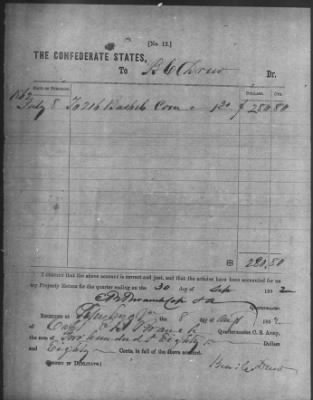 [No. 12.]
THE CONFEDERATE STATES,
To B C Drew Dr.
DATE OF PURCHASE. DOLLARS. CTS.
1862
July 8 To 216 Bushels Corn 1.30 $ 280.80
$ 280.80
I CERTIFY that the above account is correct and just, and that the articles have been accounted for on
my Property Return for the quarter ending on the 30 day of Sep 1862
RECEIVED at the 8 of Aug 1862
of Capt Quartermaster C. S. Army,
the sum of Two hundred & Eighty Dollars
and Eighty Cents, in full of the above account.
[SIGNED IN DUPLICATE.] Drew